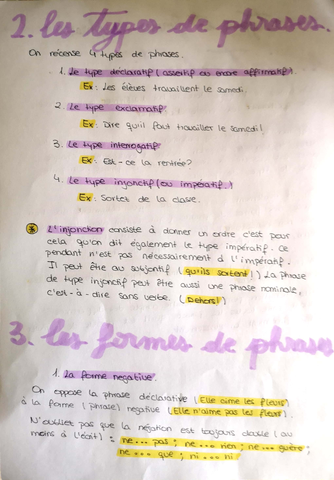 2. les types de phrases.
On recense 4 types de phrases.
1. Le type déclaratif (assertif ou encore affirmatif)
Ex: Les élèves travaillent le samedi.
2. Le type exclamatif
Ex: Dire qu'il faut travailler le samedi!
3. Le type interrogatif
Ex: Est-ce la rentrée?
4. Le type injonctif (ou impératif)
Ex: Sortez de la classe.
L'injonction consiste à donner un ordre c'est pour
cela qu'on dit également le type impératif. Ce
pendant n'est pas nécessairement à l'impératif.
Il peut être au subjontif (qu'ils sortent!) La phrase
de type injonctif peut être aussi une phrase nominale,
c'est-à-dire sans verbe. (Dehors!)
3. les formes de phrases
1. La forme negative.
On oppose la phrase déclarative (Elle aime les fleurs)
à la forme (phrase) negative (Elle n'aime pas les fleurs).
N'oubliez pas que la négation est toujours double (au
moins à l'écrit) : ne... pas ; ne... rien ; ne... guère;
ne... que ; ni... ni